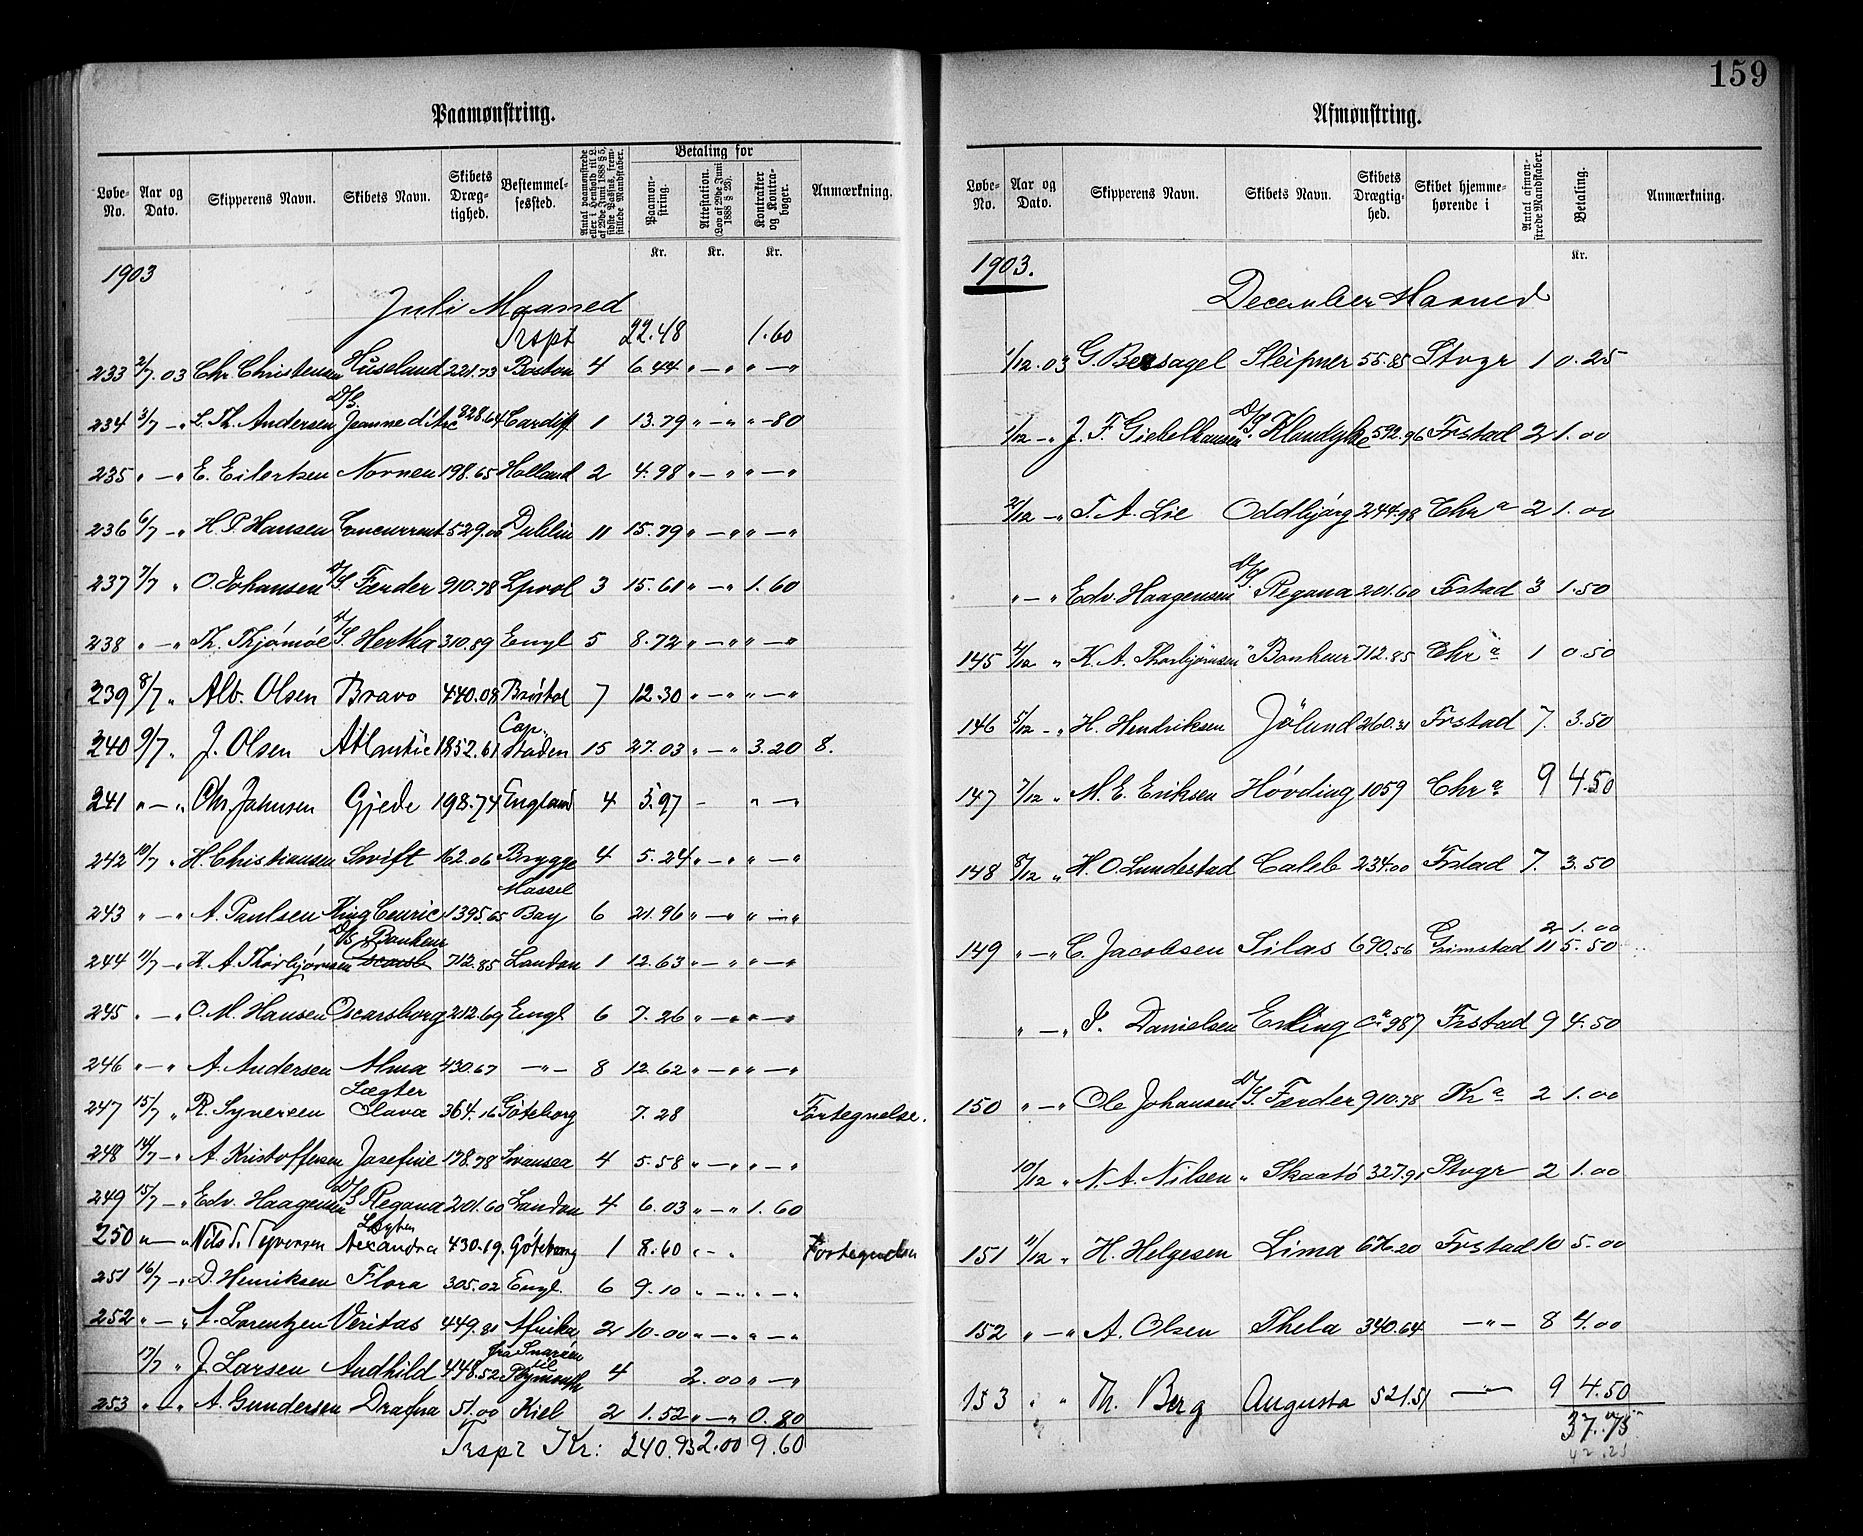 Paamønstring.
Løbe-No. | Aar og Dato. | Skipperens Navn. | Skibets Navn. | Skibets Dræg-tighed. | Bestemmel-sessted. | Antal paamønstrede eller i Henhold til L. af 29de Juni 1888 § 5, sidste Passus, frem-stillede Mandskaber. | Betaling for | Paamøn-string. | Attestation. (Lov af 29de Juni 1888 § 28). | Kontrakter og Kontra-bøger. | Anmærkning.
Kr. | Kr. | Kr.
1903
Juli Maaned
Trspt 22.48 1.60
233 2/7 03 Chr. Christensen Huseland 221.73 Boston 4 6.44 " — " " — "
234 3/7 — " L. Th. Andersen D/S. Jeanne d'Arc 828.64 Cardiff 1 13.79 " — " " — 80
235 " — " E. Eilertsen Nornen 198.65 Holland 2 4.98 " — " " — "
236 6/7 — " H. P. Hansen Concurrent 529.00 Dublin 11 15.79 " — " " — "
237 7/7 " O. Johansen D/S Færder 910.78 Lpool 3 15.61 " — " 1.60
238 " — " Th. Thjømøe D/S Hertha 310.89 Engl 5 8.72 " — " " — "
239 8/7 " Alb. Olsen Bravo 440.08 Bristol 7 12.30 " — " " — "
240 9/7 " J. Olsen Atlantic 1852.61 Cap. Staden 15 27.03 " — " 3.20 8.
241 " — " Chr. Jahnsen Gjede 198.74 England 4 5.97 — " — "
242 10/7 " H. Christiansen Swift 162.06 Brygge 4 5.24 " — " " — "
243 " — " A. Paulsen King Cenric 1395.65 Mossel Bay 6 21.96 " — " " — "
244 11/7 — " K. A. Thorbjørnsen D/S Bonheur 712.85 London 1 12.63 " — " " — "
245 " — " O. M. Hansen Oscarsborg 212.69 Engl 6 7.26 " — " " — "
246 " — " A. Andersen Alma 430.67 — " — 8 12.62 " — " " — "
247 15/7 " R. Syversen Lægter Slava 364.16 Göteborg 7.28 Fortegnelse.
248 14/7 — " A. Kristoffersen Josefine 178.78 Swansea 4 5.58 " — " " — "
249 15/7 — " Edv. Haagensen D/S Regana 201.60 London 4 6.03 " — " 1.60
250 " — " Nils S. Syversen Lægter Alexandra 430.19. Göteborg 1 8.60 " — " Fortegnelsen
251 16/7 — " D. Henriksen Flora 305.02 Engl. 6 9.10 " — " " — "
252 " — " A. Lorentzen Veritas 449.81 Afrika 2 10.00 " — " " — "
17/7 " J. Larsen Audhild 448.52 fra Snarøen til Plymouth 4 2.00 " — "
253 " — " A. Gundersen Drafna 51.00 Kiel 2 1.52 " — " 0.80
Trspt Kr: 240.93 2.00 9.60
159
Afmønstring.
Løbe-No. | Aar og Dato. | Skipperens Navn. | Skibets Navn. | Skibets Drægtig-hed. | Skibet hjemme-hørende i | Antal afmøn-strede Mandskaber. | Betaling. | Anmærkning.
Kr.
1903.
December Maaned
1/12. 03 G. Bersagel Sleipner 55.85 Stvgr 1 0.25
1/12 — " J. F. Giebelhausen D/S. Klondyke 592.96 Frstad 2 1.00
2/12 — " T. A. Lie Oddbjørg 244.98 Chr a 2 1.00
" — " Edv. Haagensen D/S. Regana 201.60 Frstad 3 1.50
145 4/12 " K. A. Thorbjørnsen " Bonheur 712.85 Chr a 1 0.50
146 5/12 — " H. Hendriksen Jølund 260.31 Frstad 7. 3.50
147 7/12 " M. E. Eriksen Høvding 1059 Chr a 9 4.50
148 8/12 " H. O. Lundestad Caleb 234.00 Frstad 7. 3.50
2 1.00
149 " — " C. Jacobsen Silas 690.56 Grimstad 11 5.50
" — " S. Danielsen Erling Ca 387 Frstad 9 4.50
150 " — " Ole Johansen D/S Færder 910.78 Kr a 2 1.00
10/12 " N. A. Nilsen " Skaatø 327.91 Stvgr 2 1.00
151 11/12 " H. Helgesen Lima 676.20 Frstad 10 5.00
152 " — " A. Olsen Thela 340.64 — " — 8 4.00
153 " " Th. Berg Augusta 521.51 — " — 9 4.50
37.75
42.25